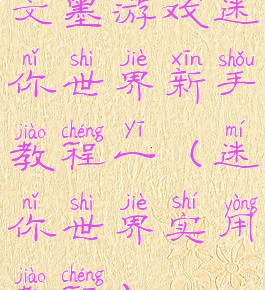 文墨游戏迷
nǐ shì jiè xīn shǒu
你世界新手
jiào chéng yī mí
教程一(迷
nǐ shì jiè shí yòng
你世界实用
jiào chéng